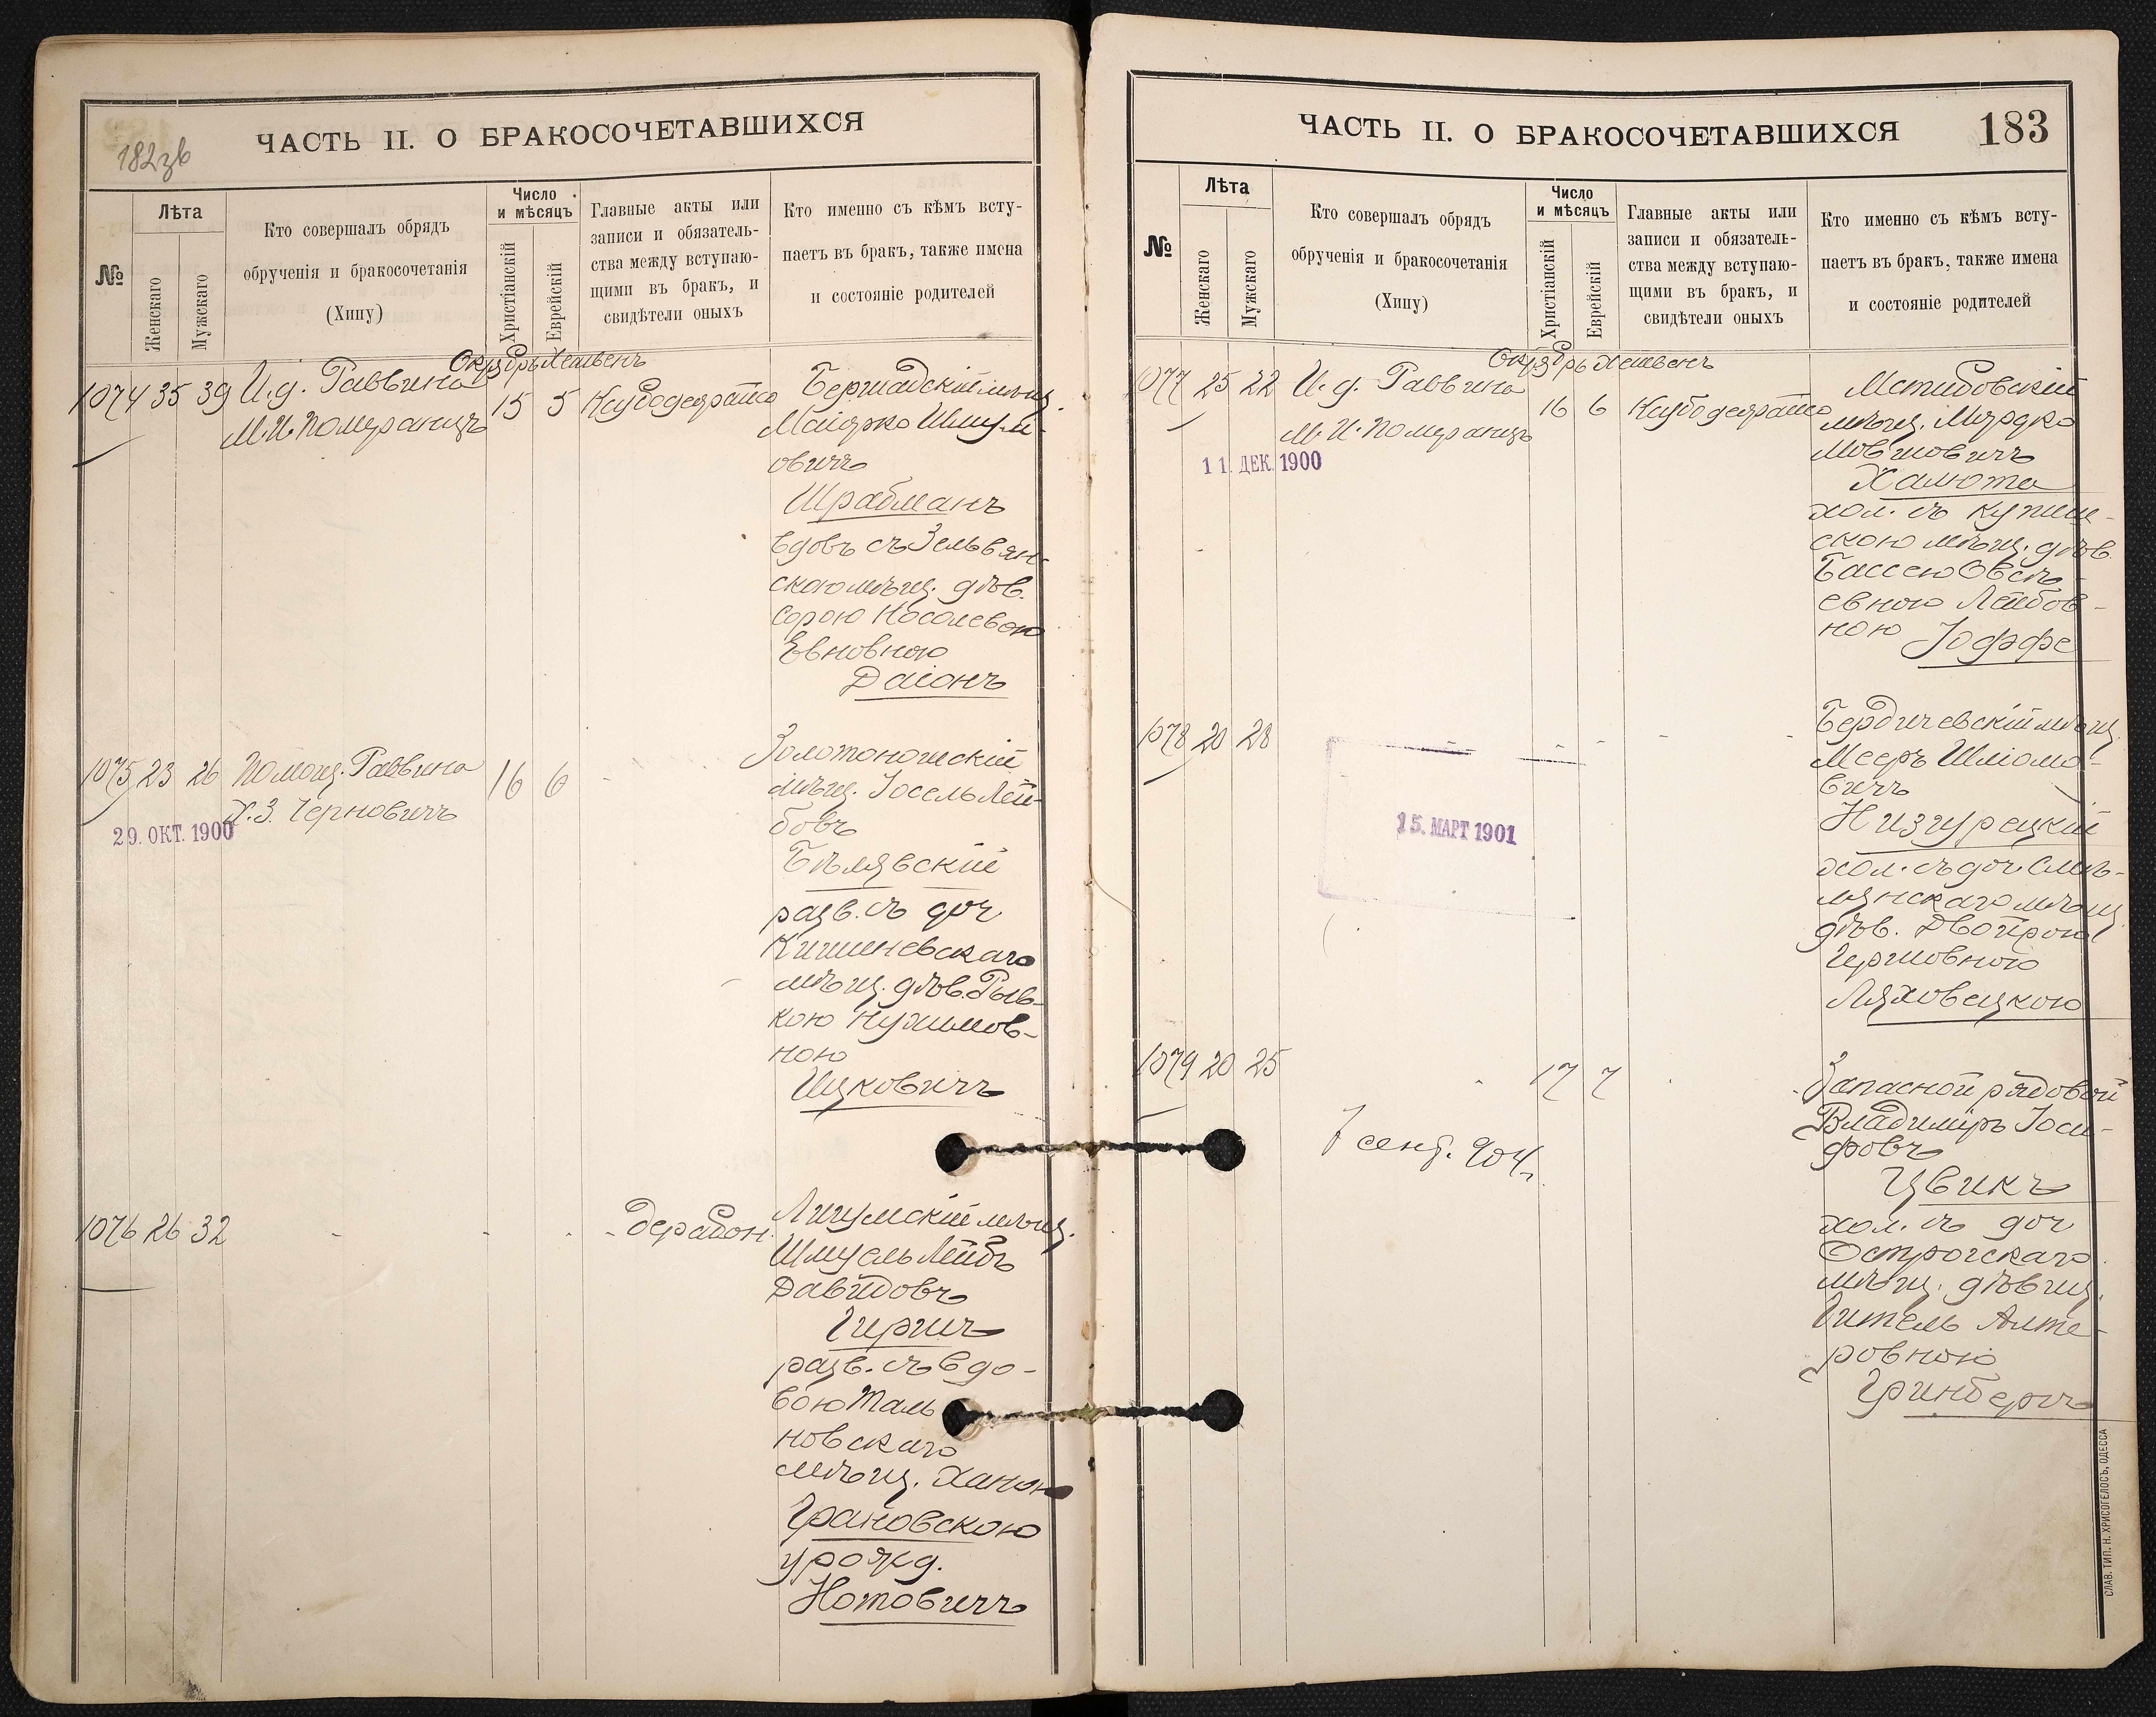 182зв
ЧАСТЬ II. О БРАКОСОЧЕТАВШИХСЯ
№
Лѣта
Женскаго
Мужскаго
Кто совершалъ обрядъ
обрученія и бракосочетанія
(Хипу)
Число
и мѣсяцъ
Христіанскій
Еврейскій
Главные акты или
записи и обязатель-
ства между вступаю-
щими въ бракъ, и
свидѣтели оныхъ
Кто именно съ кѣмъ всту-
паетъ въ бракъ, также имена
и состояніе родителей
Октябрь Хешвенъ
1074 35 39 И.д. Раввина
М. И. Померанцъ
15 5
Бершадскій мѣщ.
Маіорко Шмул-
овичъ
Шрабманъ
вдовъ съ Зельвян-
скою мѣщ. дѣв.
Сорою
Евновною
Даіонъ
1075 23 26 Помощ. Раввина
Х.З. Черновичъ
29. ОКТ. 1900
16 6
Золотоношскій
мѣщ. Іосель Лей-
бовъ
Бѣлявскій
разв. съ доч
Кишиневскаго
мѣщ. дѣв. Рыв-
кою Нухимов-
ною
Ицковичъ
1076 26 32
Шмуель Лейбъ
Давидовъ
Гиршъ
разв. съ вдо-
вою Таль
новскаго
мѣщ. Ханою
Грановскою
урожд.
Нотовичъ
ЧАСТЬ II. О БРАКОСОЧЕТАВШИХСЯ
183
№
Лѣта
Женскаго
Мужскаго
Кто совершалъ обрядъ
обрученія и бракосочетанія
(Хипу)
Число
и мѣсяцъ
Христіанскій
Еврейскій
Главные акты или
записи и обязатель-
ства между вступаю-
щими въ бракъ, и
свидѣтели оныхъ
Кто именно съ кѣмъ всту-
паетъ въ бракъ, также имена
и состояніе родителей
Октябрь Хешвенъ
1077 25 22 И. д. Раввина
М. И. Померанцъ
11. ДЕК. 1900
16 6
Мстибовскій
мѣщ. Мордко
Мовшовичъ
Халюта
хол. съ купиш-
скою мѣщ. дѣв.
Бассею Овсѣ-
евною Лейбов-
ною Іоффе
1078 20 28
15. МАРТ 1901
Бердичевскій мѣщ.
Мееръ Шліомо-
вичъ
Низгурецкій
хол. съ доч. Смѣ-
лянскаго мѣщ.
дѣв. Двойрою
Гершовною
Ляховецкою
1079 20 25
17 7
7 сент. 904г.
Запасной рядовой
Владиміръ Іоси-
фовъ
Цвикъ
хол. съ доч
Острогскаго
мѣщ. дѣвиц.
Гитель Алте-
ровною
Гринбергъ
СЛАВ. ТИП. Н. ХРИСОГЕЛОСЪ, ОДЕССА